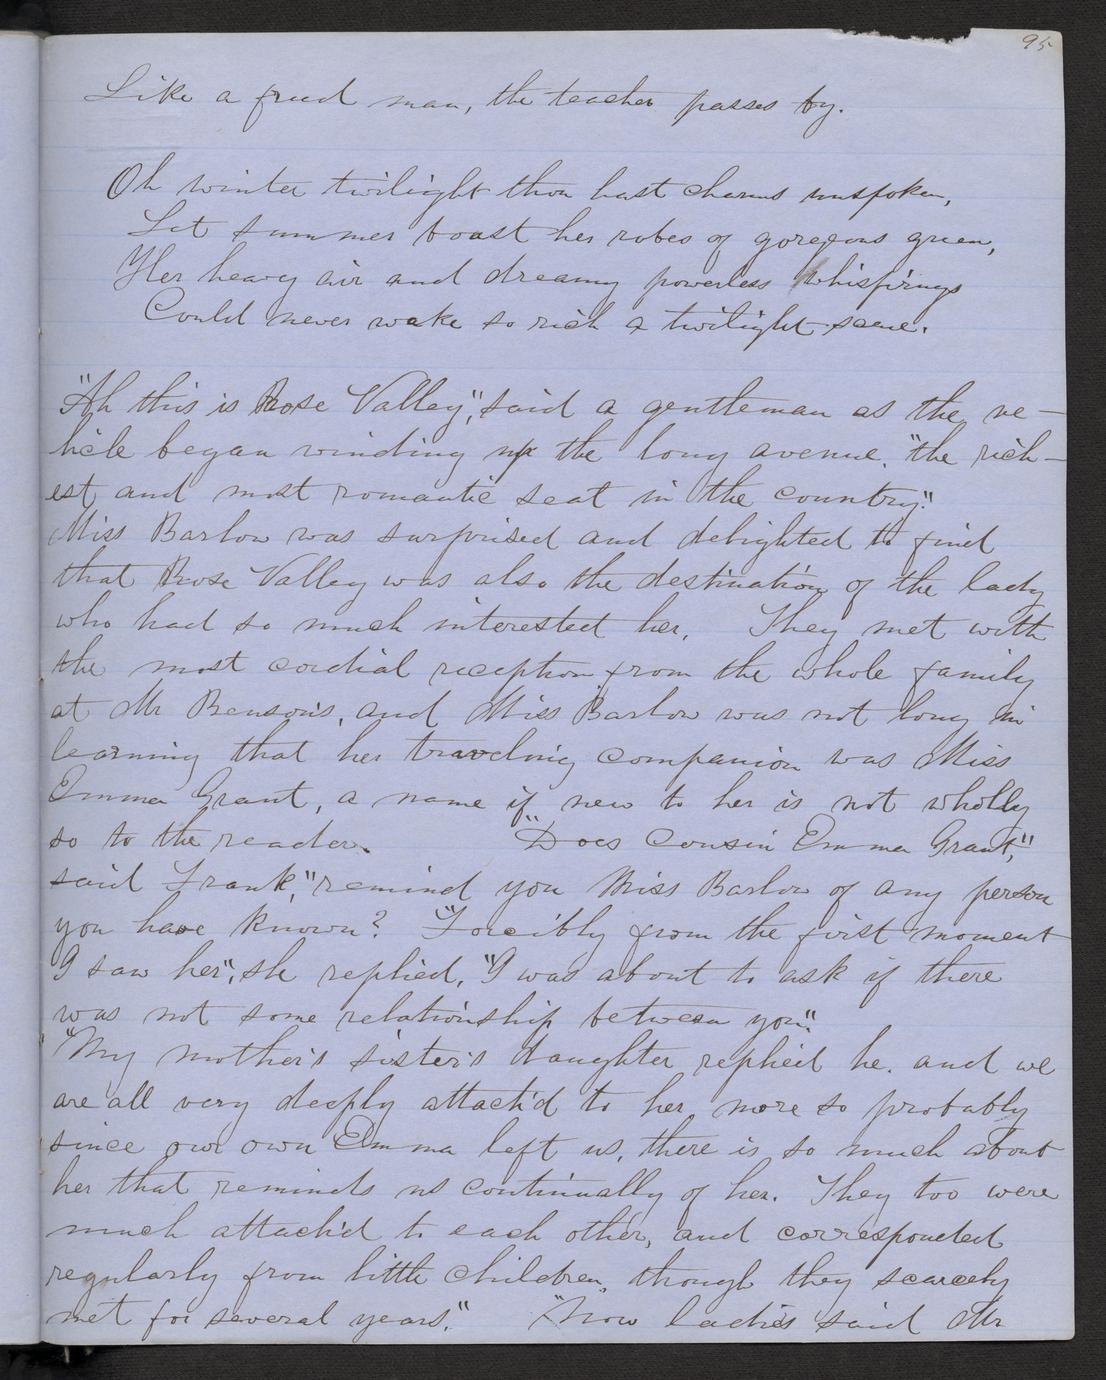 95
Like a freed man, the teacher passes by.
Oh winter twilight thou hast charms unspoken,
Let summer boast her robes of goregous green,
Her heavy air and dreamy powerless whisperings
Could never wake so rich a twilight scene.
"Ah this is Rose Valley," said a gentleman as the ve-
hicle began winding up the long avenue. "the rich-
est and most romantic seat in the country."
Miss Barlow was surprised and delighted to find
that Rose Valley was also the destination of the lady
who had so much interested her. They met with
the most cordial reception from the whole family
at Mr Benson's, and Miss Barlow was not long in
learning that her traveling companion was Miss
Emma Grant, a name if new to her is not wholly
so to the reader. "Does Cousin Emma Grant,"
said Frank, "remind you Miss Barlow of any person
you have known? "Forcibly from the first moment
I saw her", she replied, "I was about to ask if there
was not some relationship between you".
"My mother's sister's daughter replied he. and we
are all very deeply attach'd to her, more so probably
since our own Emma left us, there is so much about
her that reminds us continually of her. They too were
much attach'd to each other, and corresponded
regularly from little children, though they scarcely
met for several years." "Now ladies said Mr